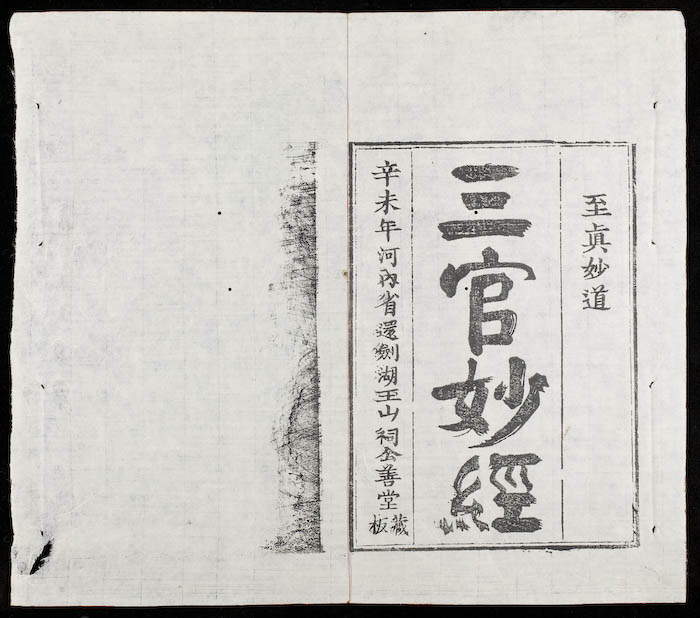 至眞妙道
三官妙經
辛未年河內省還劍湖玉山祠公善堂藏板